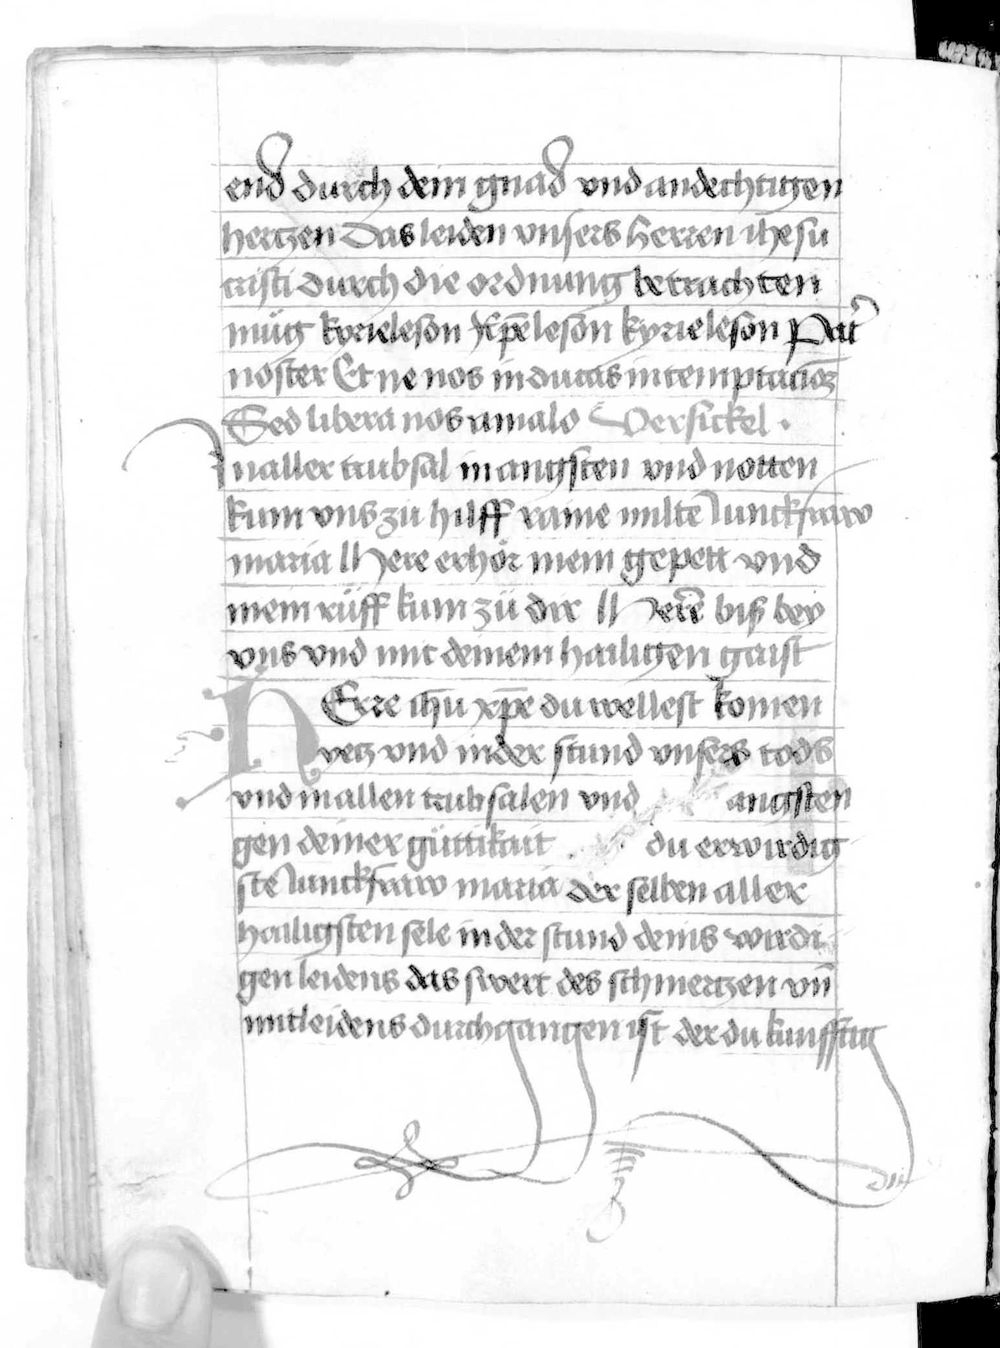 end durch dein gnad vnd andechtigen
hertzen Das leiden vnsers herren ihesu
cristi durch die ordnung betrachten
müg kyrieleson xp̄eleson kyrieleson Pat̄
noster Et ne nos inducas in temptacioꝫ
Sed libera nos a malo Versickel .
In aller trubsal in angsten vnd notten
kum vns zu hilff raine milte Junckfraw
maria Here erhör mein gepett vnd
mein rüff kum zü dir Here biß bey
vns vnd mit deinem hailigen gaist
HErre ihū xp̄e du wellest komen
yetz vnd in der stund vnsers tods
vnd in allen trubsalen vnd angsten
gen deiner güttikait du erwirdig
ste Junckfraw maria der selben aller
hailigsten sele in der stund deins wirdi
gen leidens das swert des schmertzen vn̄
mitleidens durchgangen ist der du kunfftig